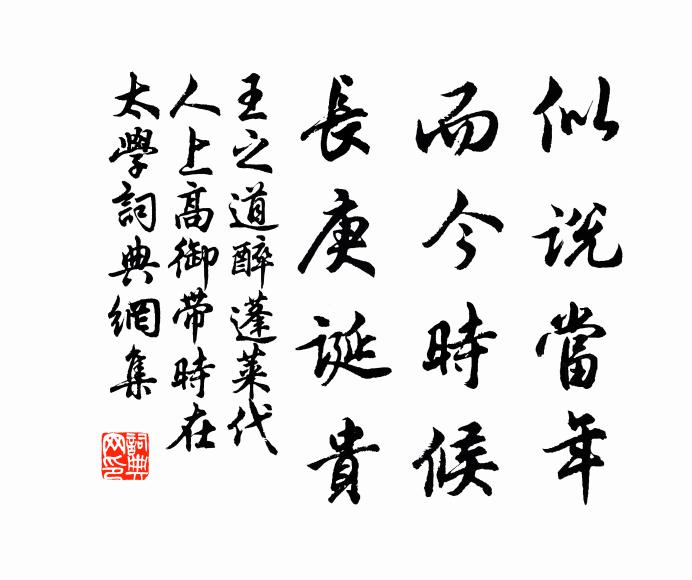 似說當年
而今時候
長庚誕貴
王之道醉蓬萊代
人上高御帶時在
太學詞典網集
詞典網印